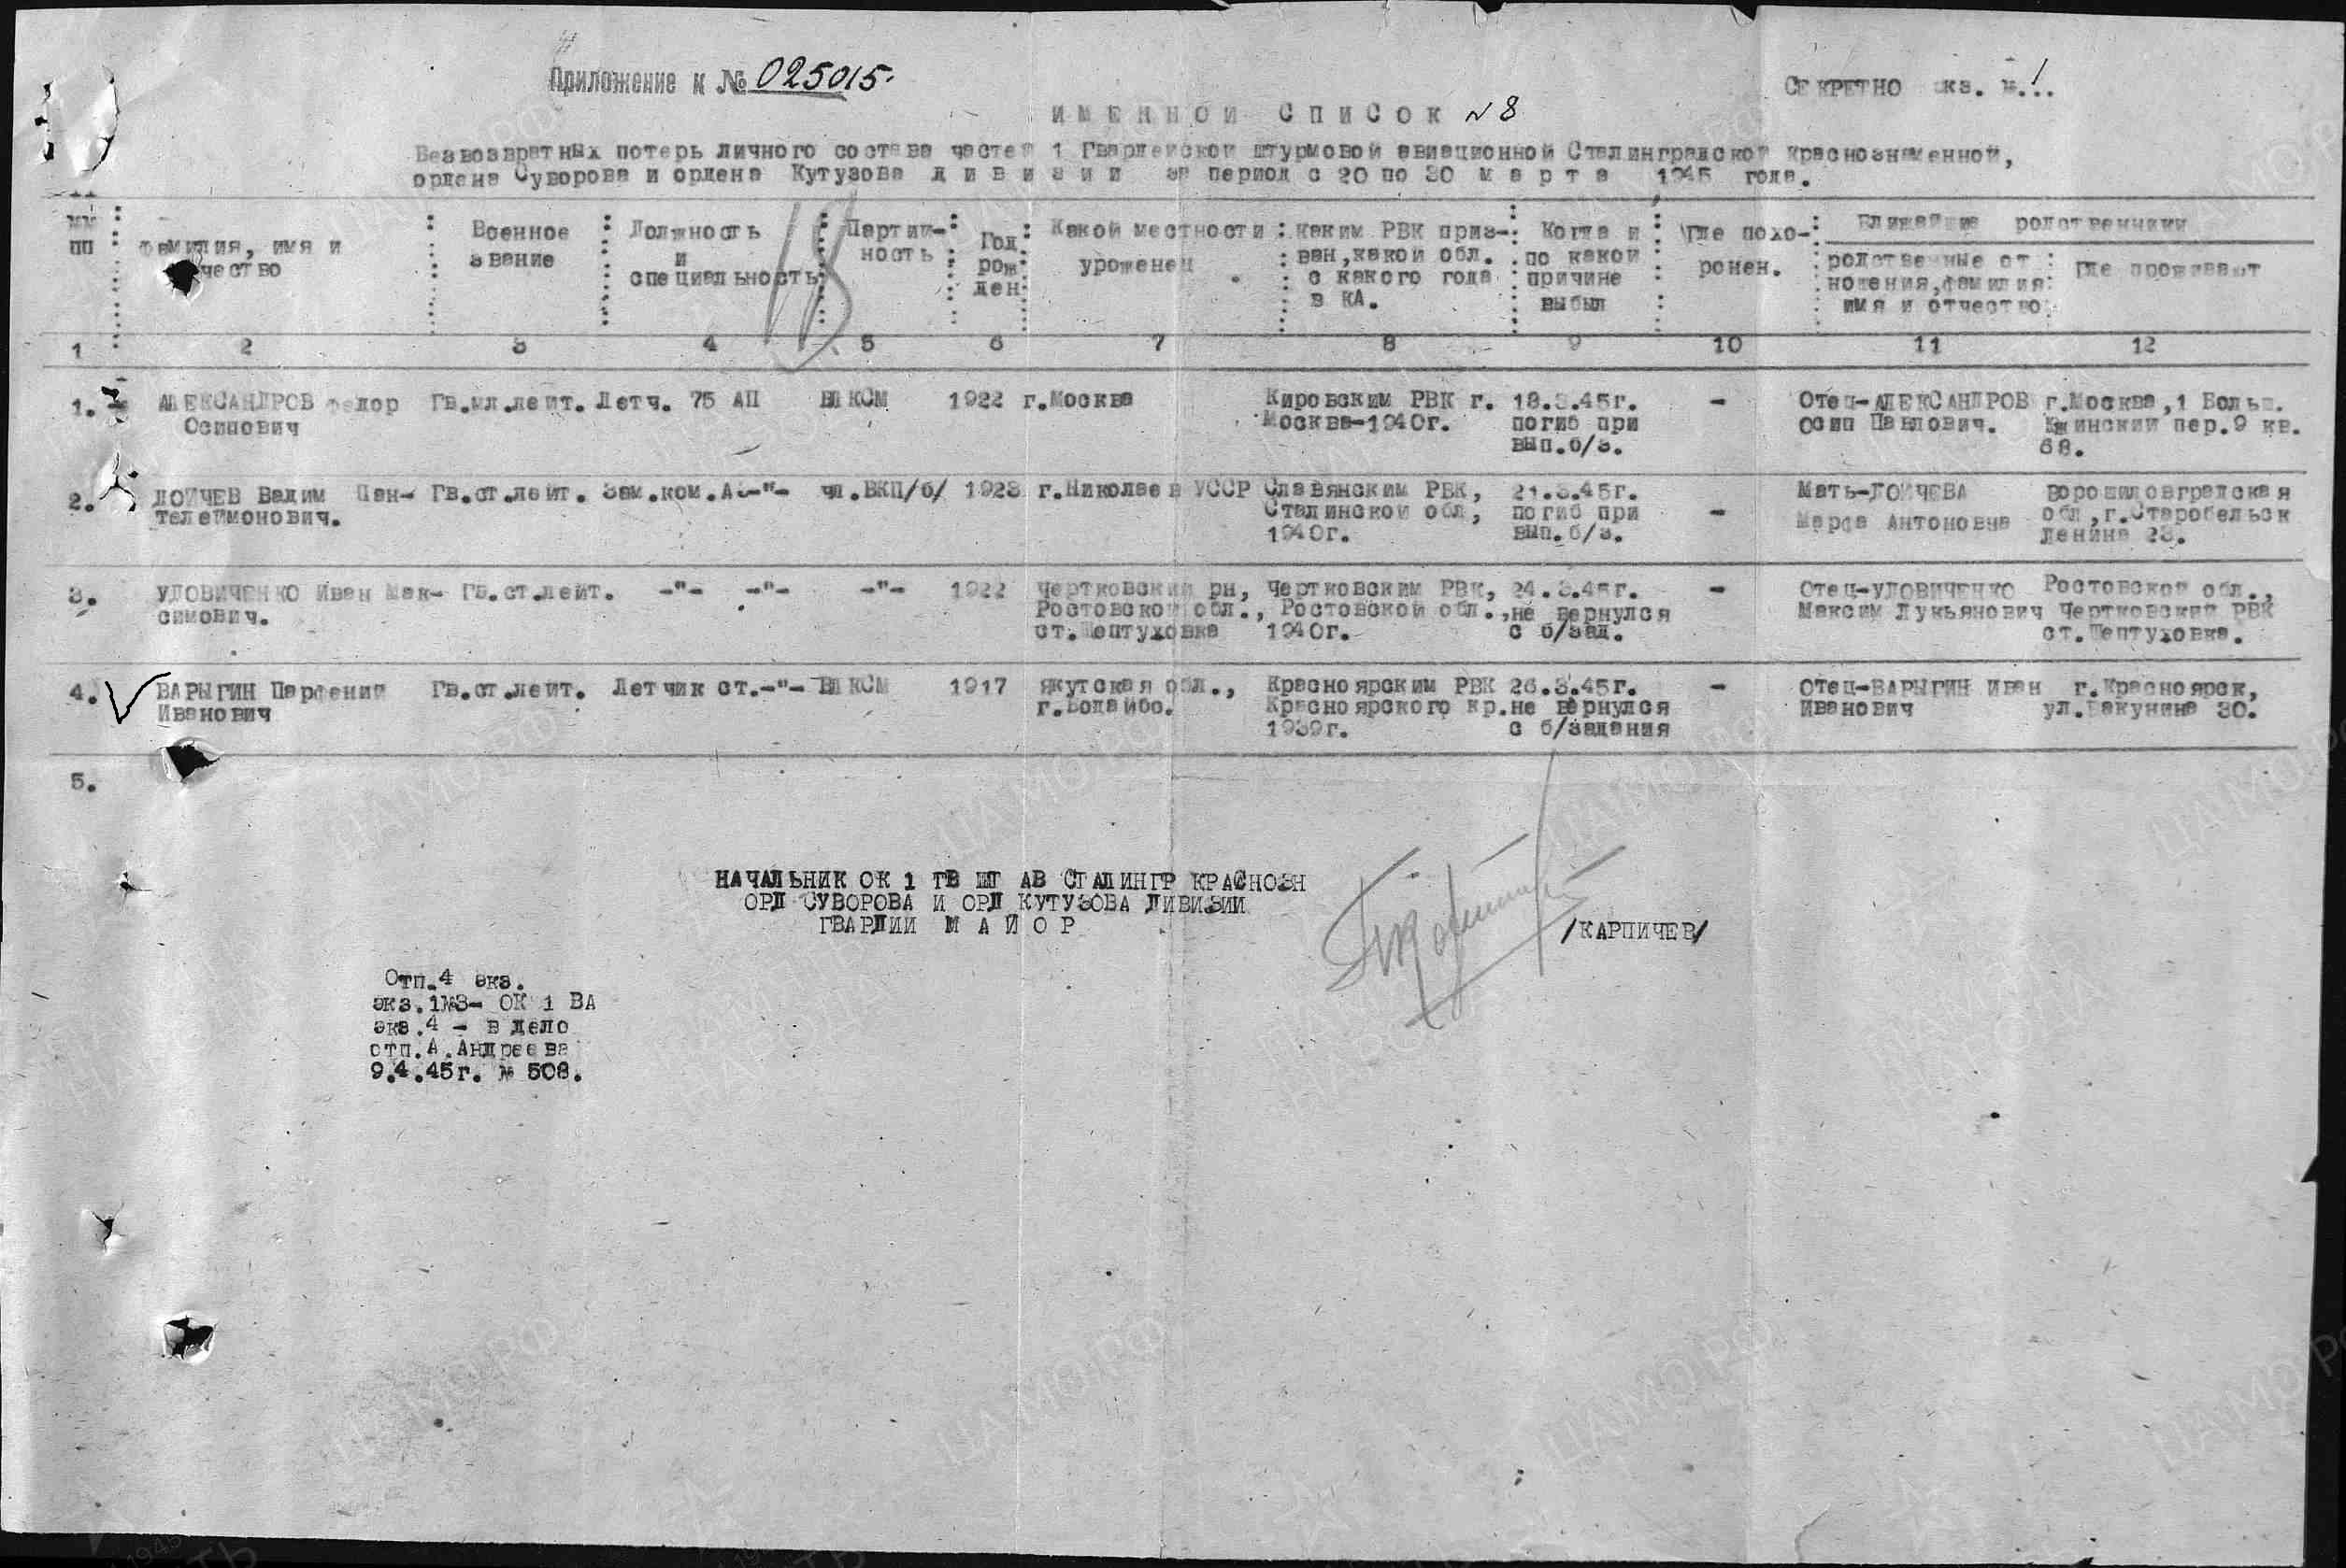 Приложение к № 025015.
СЕКРЕТНО экз. №.1..
ИМЕННОЙ СПИСОК №8
Безвозвратных потерь личного состава частей 1 Гвардейской штурмовой авиационной Сталинградской краснознаменной,
ордена Суворова и ордена Кутузова дивизии за период с 20 по 30 марта 1945 года.
18
№№ Военное Должность Партий- Год Какой местности каким РВК приз- Когда и Где похо- Ближайшие родственники
пп фамилия, имя и звание и ность рож уроженец ван, какой обл. по какой ронен. родственные от Где проживают
чество специальность ден с какого года причине ношения, фамилия
в КА. выбыл имя и отчество
1 2 3 4 5 6 7 8 9 10 11 12
1. АЛЕКСАНДРОВ Федор Гв.мл.лейт. Летч. 75 АП ВЛКСМ 1922 г.Москва Кировским РВК г. 18.3.45г. - Отец-АЛЕКСАНДРОВ г.Москва,1 Больш.
Осипович Москва-1940г. погиб при Осип Павлович. пер.9 кв.
вып.б/з. 68.
2. ЛОЙЧЕВ Вадим Пан- Гв.ст.лейт. Зам.ком.АЭ-"- чл.ВКП/б/ 1923 г.Николаев УССР Славянским РВК, 21.3.45г. Мать-ЛОЙЧЕВА Ворошиловградская
телеймонович. Сталинской обл, погиб при - Марфа Антоновна обл,г.Старобельск
1940г. вып.б/з. Ленина 23.
3. УДОВИЧЕНКО Иван Мак- Гв.ст.лейт. -"- -"- -"- 1922 Чертковский рн, Чертковским РВК, 24.3.45г. - Отец-УДОВИЧЕНКО Ростовской обл.,
симович. Ростовской обл., Ростовской обл., не вернулся Максим Лукьянович Чертковский РВК
ст.Шептуховка 1940г. с б/зад. ст.Шептуховка.
4. ВАРЫГИН Парфений Гв.ст.лейт. Летчик ст.-"- ВЛКСМ 1917 Якутская обл., Красноярским РВК 26.3.45г. - Отец-ВАРЫГИН Иван г.Красноярск,
Иванович г.Бодайбо. Красноярского кр. не вернулся Иванович ул.Бакунина 30.
1939г. с б/задания
5.
НАЧАЛЬНИК ОК 1 ГВ ШТ АВ СТАЛИНГР КРАСНОЗН
ОРД СУВОРОВА И ОРД КУТУЗОВА ДИВИЗИИ
ГВАРДИИ МАЙОР /КАРПИЧЕВ/
Отп.4 экз.
экз.1№3- ОК 1 ВА
экз.4 - в дело
отп.А.Андреева
9.4.45г. № 508.